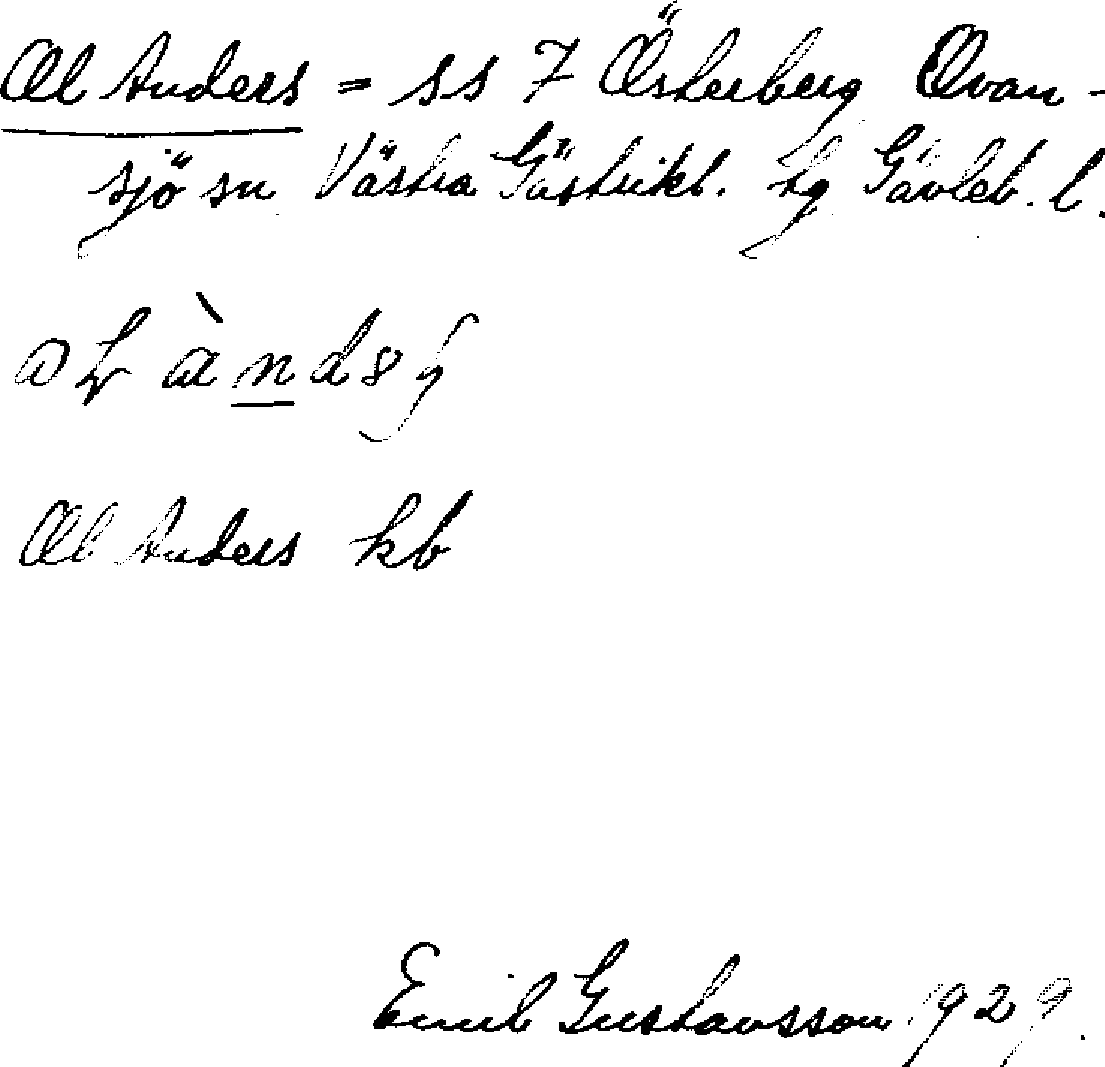 Ol Anders = ss 7 Österberg Ovan-
sjö sn Västra Gästrikl. tg Gävleb. l.
Ol Anders kb
Emil Gustavsson 1929.